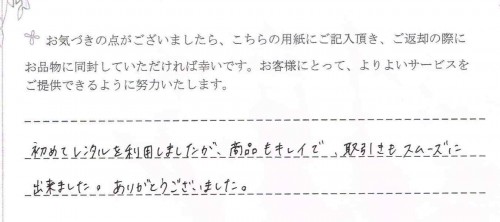 お気づきの点がございましたら、こちらの用紙にご記入頂き、ご返却の際に
お品物に同封していただければ幸いです。お客様にとって、よりよいサービスを
ご提供できるように努力いたします。
初めてレンタルを利用しましたが、商品もキレイで、取引きもスムーズに
出来ました。ありがとうございました。